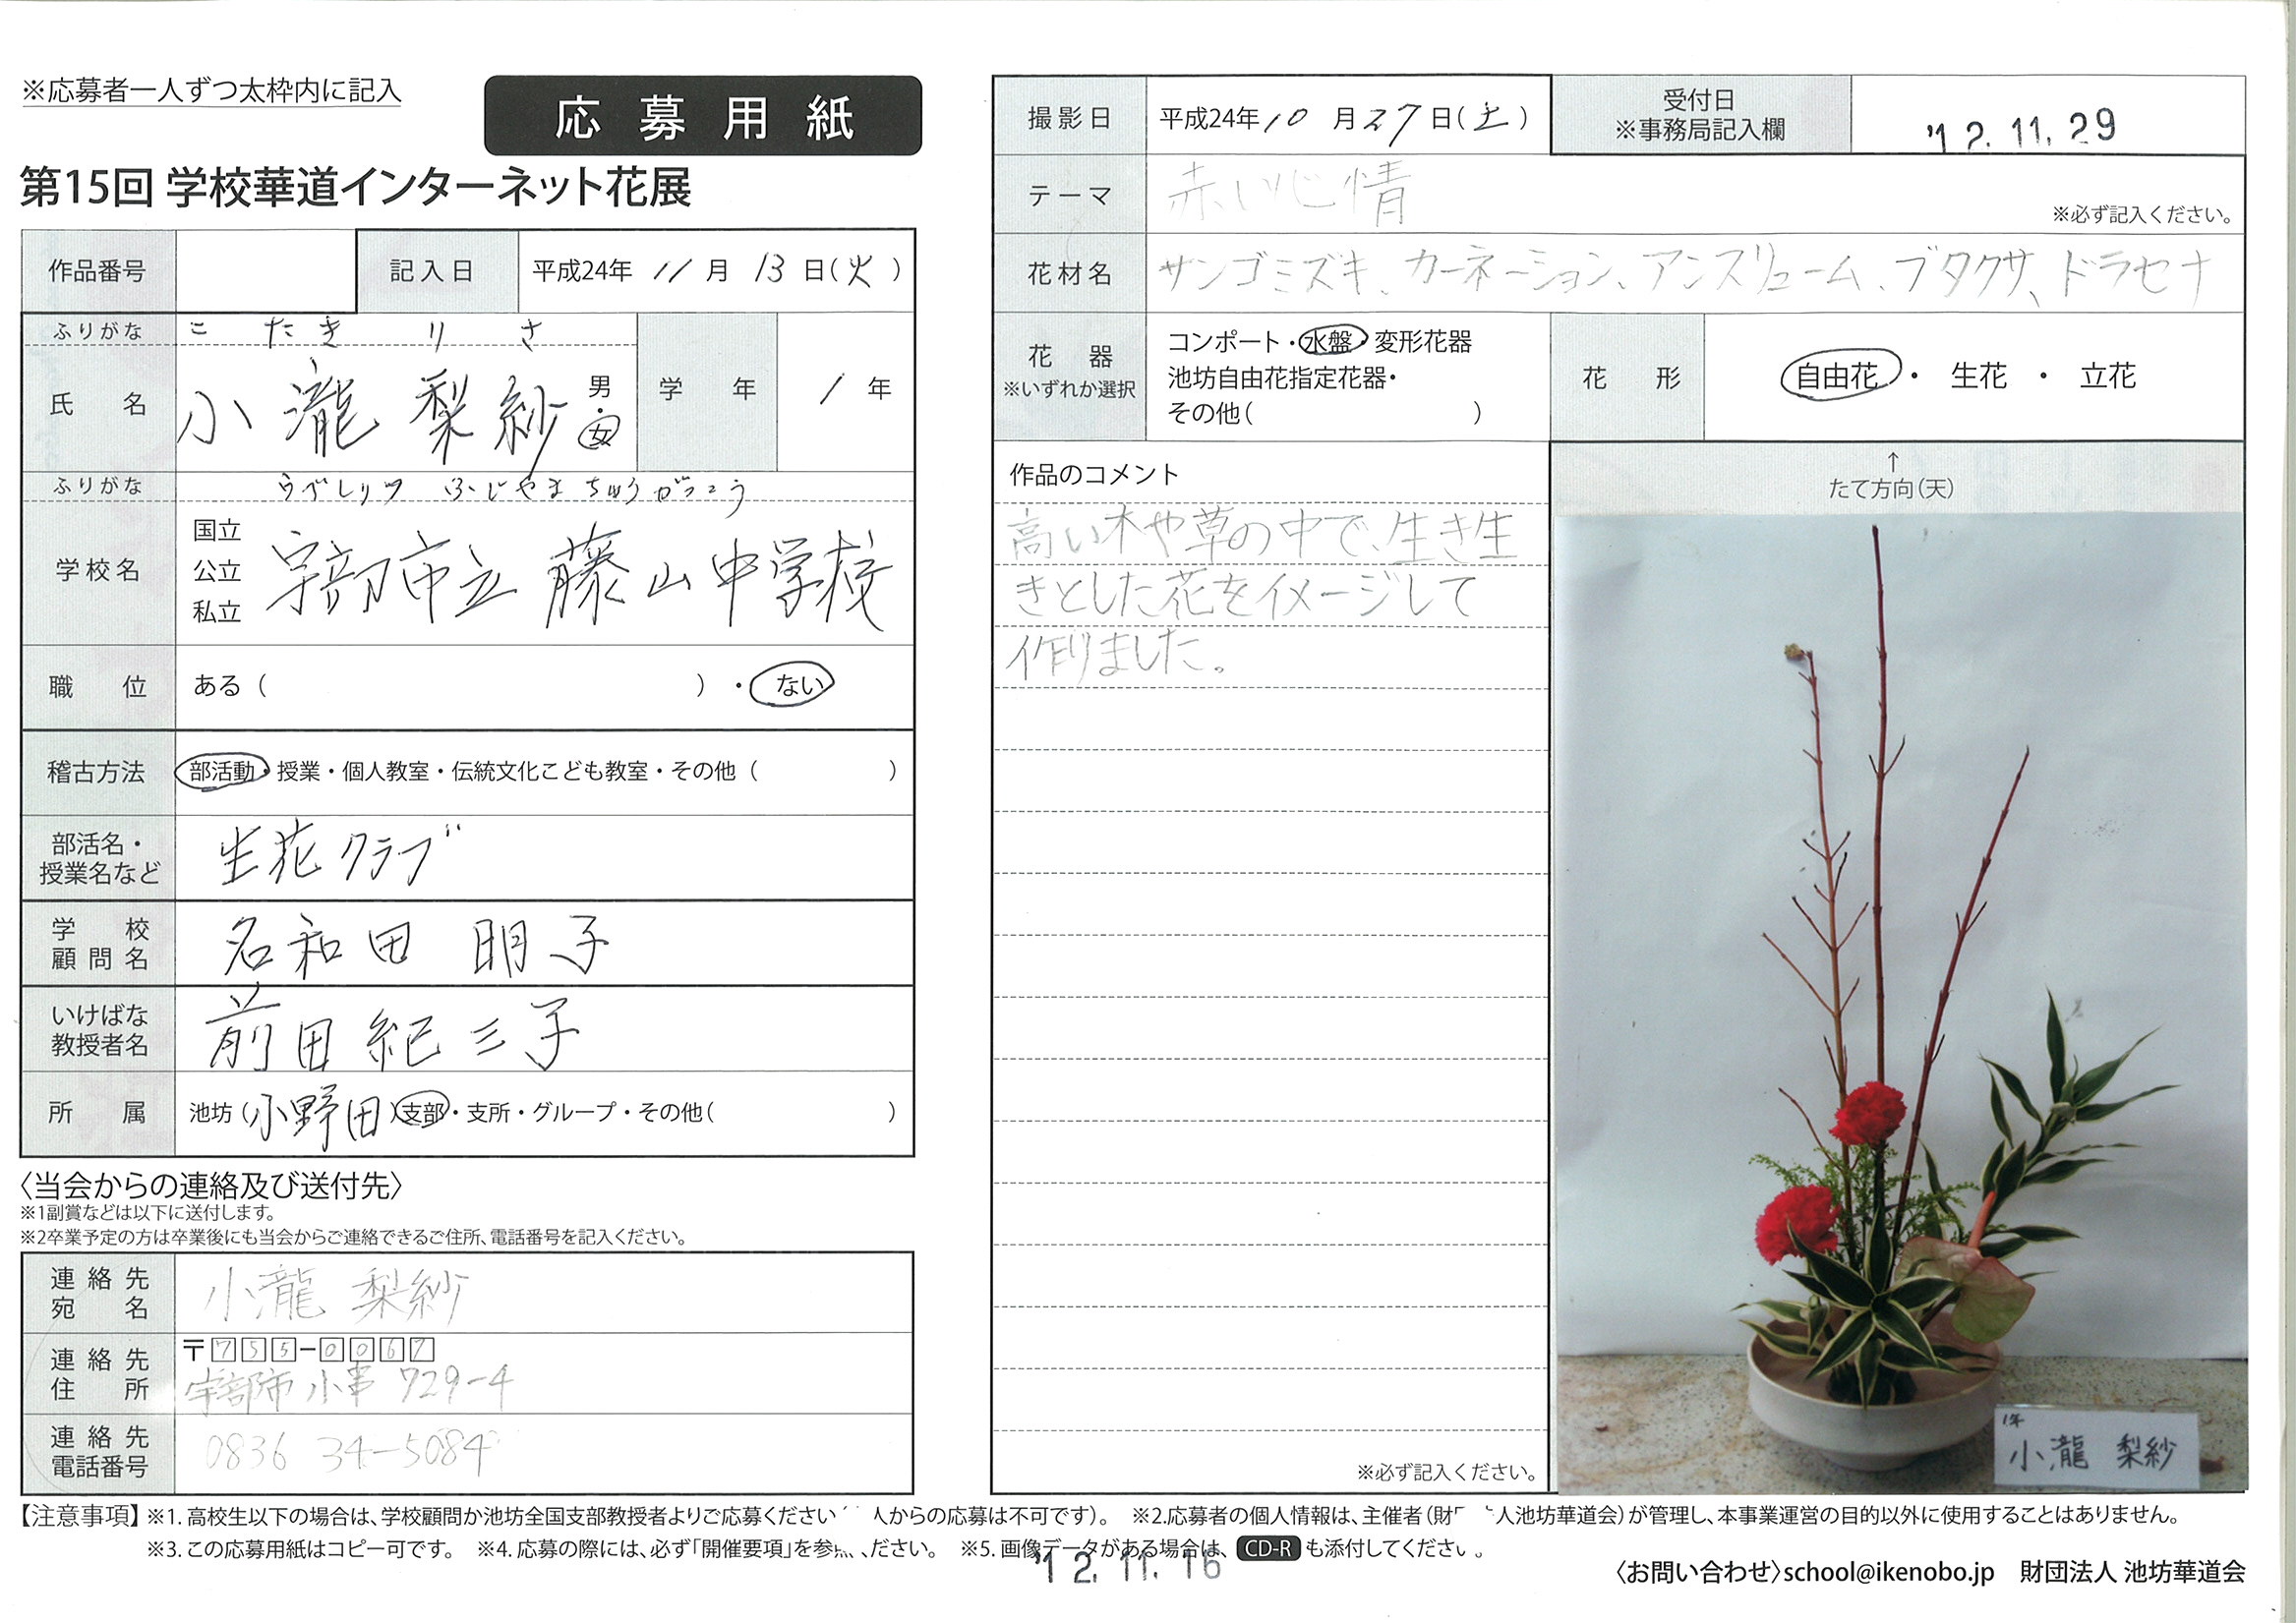 ※応募者一人ずつ太枠内に記入
応募用紙
第15回 学校華道インターネット花展
作品番号
記入日 平成24年 11月 13日(火)
ふりがな こ たき り さ
氏名 小瀧 梨紗 男・女
学年 1年
ふりがな うべしりつ ふじやまちゅうがっこう
学校名 国立 公立 私立 宇部市立 藤山中学校
職位 ある( )・ない
稽古方法 部活動・授業・個人教室・伝統文化こども教室・その他( )
部活名・授業名など 生花クラブ
学校顧問名 名和田 明子
いけばな教授者名 前田 紀三子
所属 池坊(小野田)支部・支所・グループ・その他( )
〈当会からの連絡及び送付先〉
※1副賞などは以下に送付します。
※2卒業予定の方は卒業後にも当会からご連絡できるご住所、電話番号を記入ください。
連絡先宛名 小瀧 梨紗
連絡先住所 〒755-0067
宇部市 小串 729-4
連絡先電話番号 0836 34-5084
撮影日 平成24年10月27日(土)
受付日
※事務局記入欄
'12.11.29
テーマ 赤い心情
※必ず記入ください。
花材名 サンゴミズキ、カーネーション、アンスリューム、ブタクサ、ドラセナ
花器
※いずれか選択
コンポート・水盤・変形花器
池坊自由花指定花器・
その他( )
花形 自由花・生花・立花
作品のコメント
高い木や草の中で、生き生
きとした花をイメージして
作りました。
※必ず記入ください。
↑
たて方向(天)
1年
小瀧 梨紗
【注意事項】※1.高校生以下の場合は、学校顧問か池坊全国支部教授者よりご応募ください 人からの応募は不可です)。 ※2.応募者の個人情報は、主催者(財 人池坊華道会)が管理し、本事業運営の目的以外に使用することはありません。
※3.この応募用紙はコピー可です。 ※4.応募の際には、必ず「開催要項」を参 ください。 ※5.画像データがある場合は、CD-Rも添付してください。
'12.11.16
〈お問い合わせ〉school@ikenobo.jp 財団法人 池坊華道会